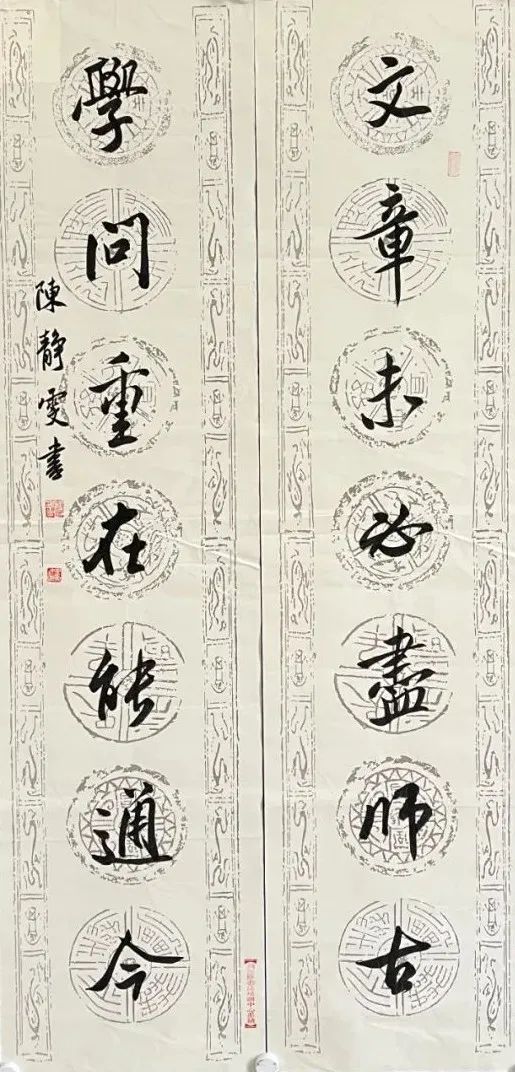 文章未必盡師古
學問重在能通今
陳靜雯書